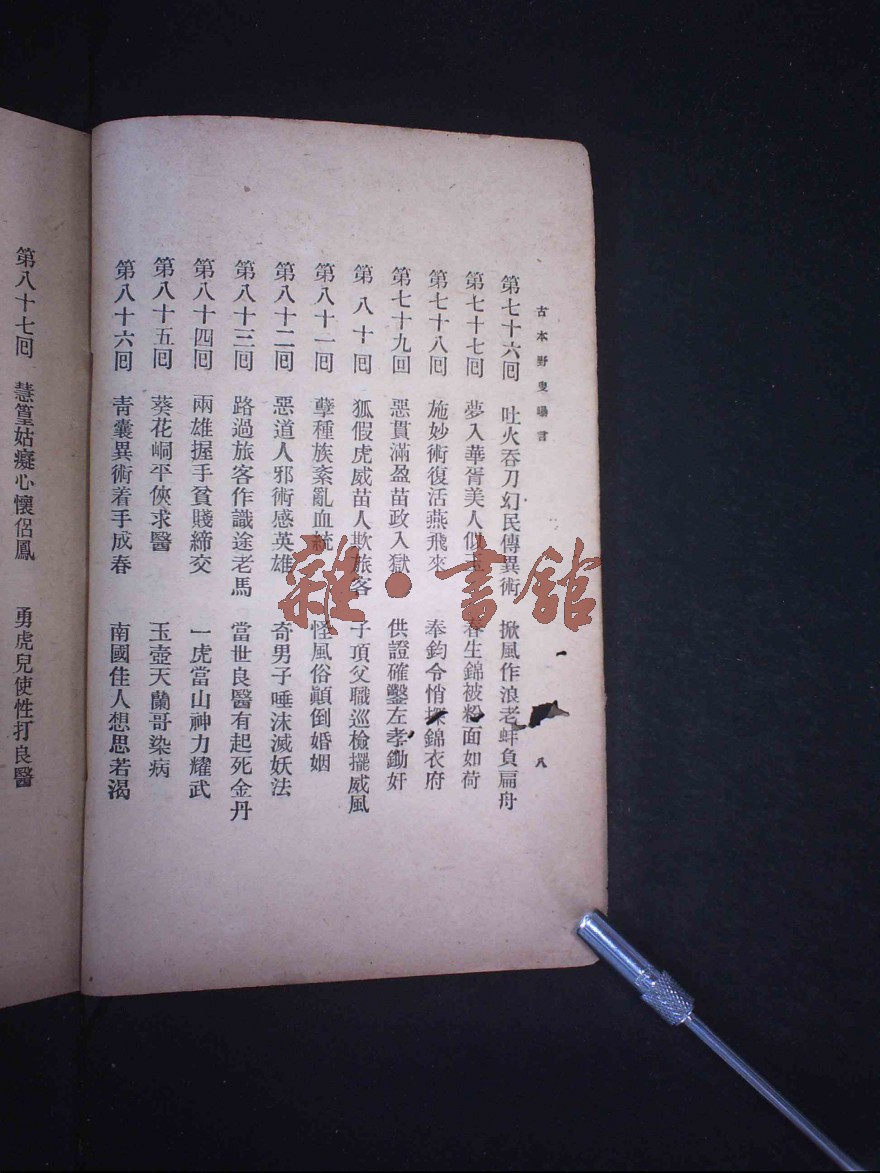 古本野叟曝言
八
第七十六囘 吐火吞刀幻民傳異術 掀風作浪老蚌負扁舟
第七十七囘 夢入華胥美人似玉 春生錦被粉面如荷
第七十八囘 施妙術復活燕飛來 奉鈞令悄探錦衣府
第七十九回 惡貫滿盈苗政入獄 供證確鑿左孝鋤奸
第八十囘 狐假虎威苗人欺旅客 子頂父職巡檢擺威風
第八十一囘 孽種族紊亂血統 怪風俗顚倒婚姻
第八十二囘 惡道人邪術感英雄 奇男子唾沫滅妖法
第八十三囘 路過旅客作識途老馬 當世良醫有起死金丹
第八十四囘 兩雄握手貧賤締交 一虎當山神力耀武
第八十五囘 葵花峒平俠求醫 玉壺天蘭哥染病
第八十六囘 靑囊異術着手成春 南國佳人想思若渴
第八十七囘 慧篁姑癡心懷侶鳳 勇虎兒使性打良醫
雜·書館